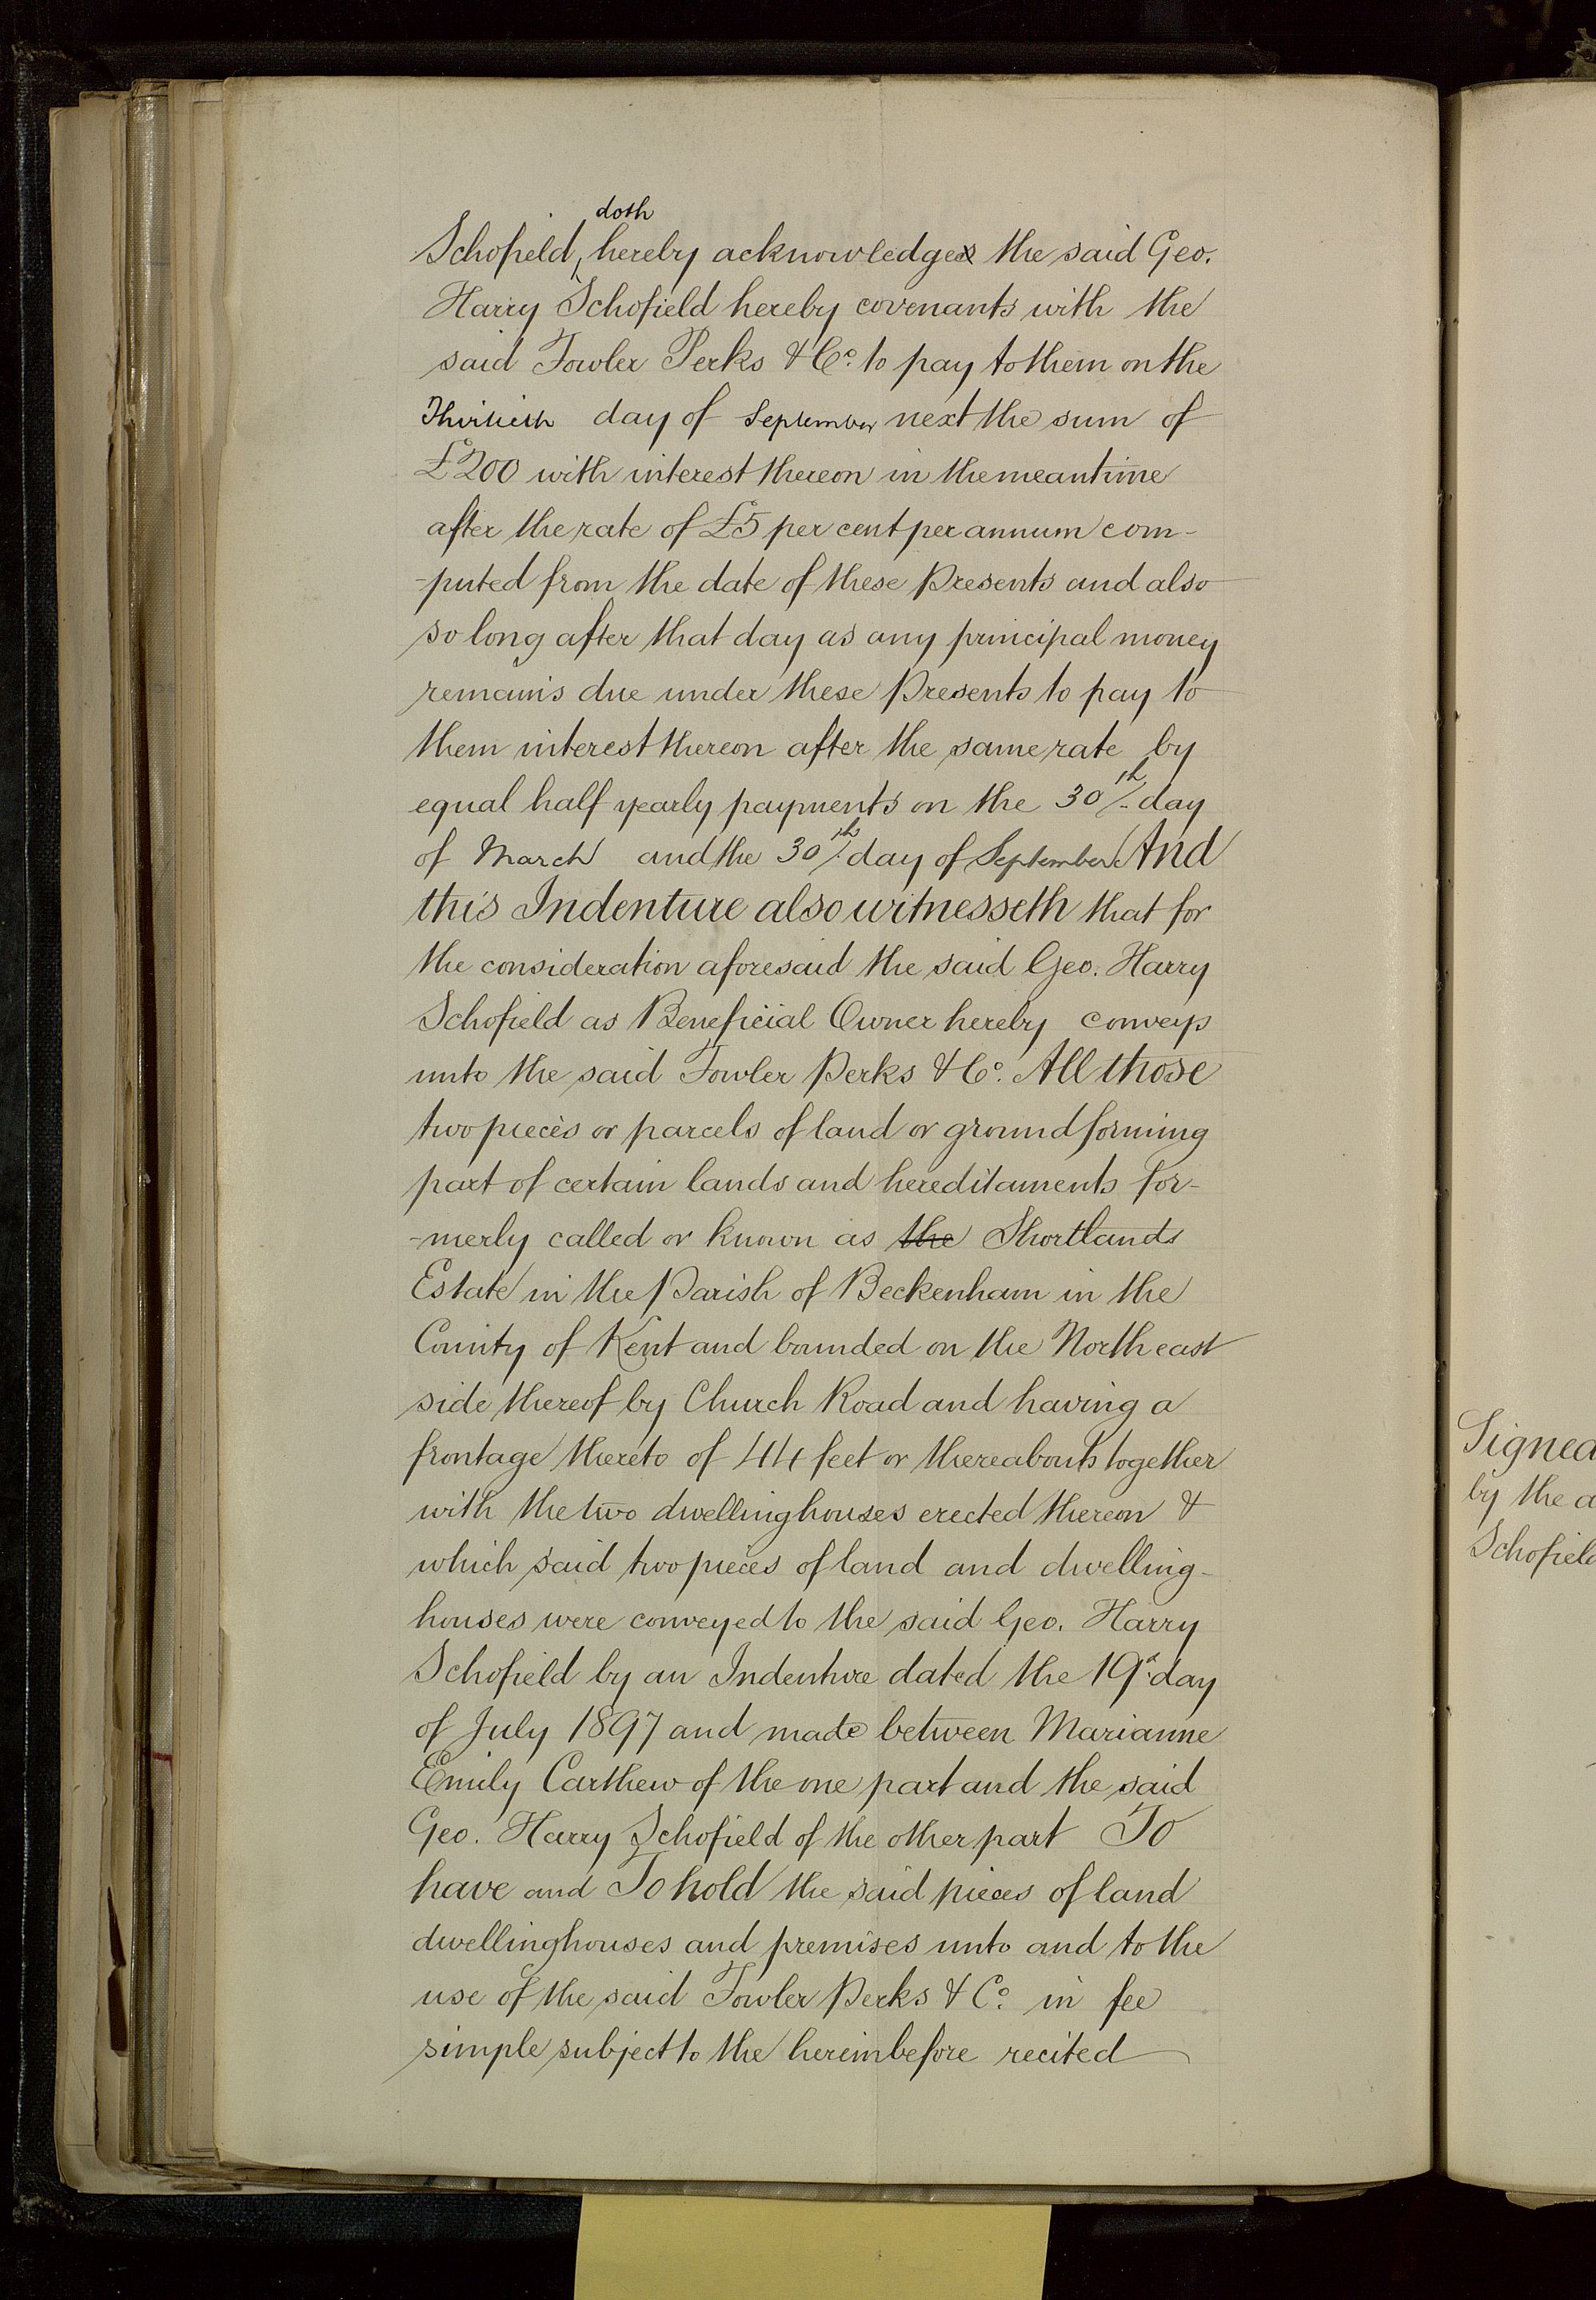 doth
Schofield, hereby acknowledges the said Geo.
Harry Schofield hereby covenants with the
said Fowler Perks & Co. to pay to them on the
Thirtieth day of September next the sum of
£200 with interest thereon in the meantime
after the rate of £5 per cent per annum com-
-puted from the date of these Presents and also
so long after that day as any principal money
remains due under these Presents to pay to
them interest thereon after the same rate by
equal half yearly payments on the 30th day
of March and the 30th day of September And
this Indenture also witnesseth that for
the consideration aforesaid the said Geo. Harry
Schofield as Beneficial Owner hereby conveys
unto the said Fowler Perks & Co. All those
two pieces or parcels of land or ground forming
part of certain lands and hereditaments for-
-merly called or known as the Shortlands
Estate in the Parish of Beckenham in the
County of Kent and bounded on the North east
side thereof by Church Road and having a
frontage thereto of 44 feet or thereabouts together
with the two dwellinghouses erected thereon &
which said two pieces of land and dwelling-
houses were conveyed to the said Geo. Harry
Schofield by an Indenture dated the 19th day
of July 1897 and made between Marianne
Emily Carthew of the one part and the said
Geo. Harry Schofield of the other part To
have and To hold the said pieces of land
dwellinghouses and premises unto and to the
use of the said Fowler Perks & Co. in fee
simple subject to the hereinbefore recited
Signed
by the a
Schofield